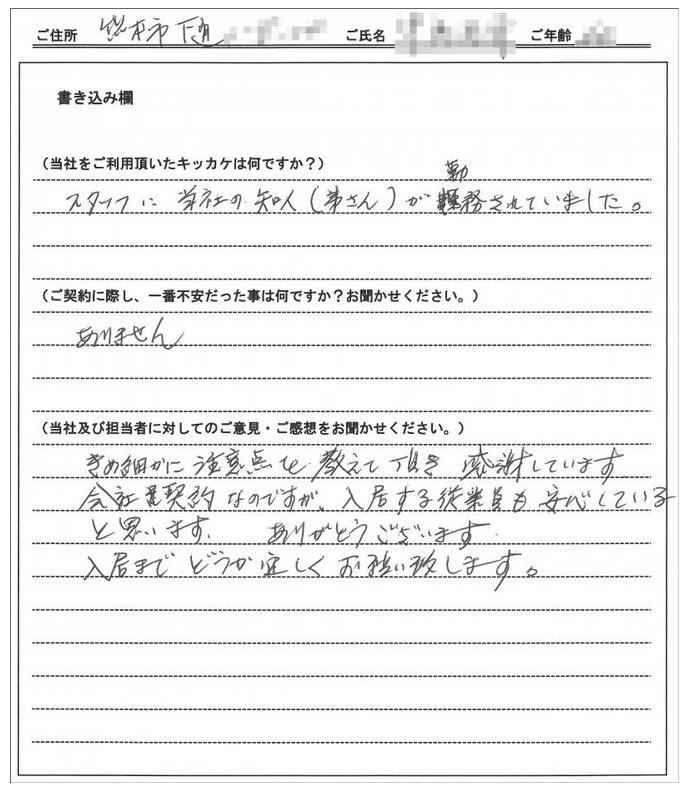 ご住所 熊本市 下通 ご氏名 ご年齢
書き込み欄
(当社をご利用頂いたキッカケは何ですか?)
勤
スタッフに 当社の知人(弟さん)が 務されていました。
(ご契約に際し、一番不安だった事は何ですか?お聞かせください。)
ありません
(当社及び担当者に対してのご意見・ご感想をお聞かせください。)
きめ細かに 注意点を 教えて頂き 感謝しています
会社 契約なのですが、入居する従業員も 安心している
と思います。 ありがとうございます。
入居まで どうか宜しく お願い致します。